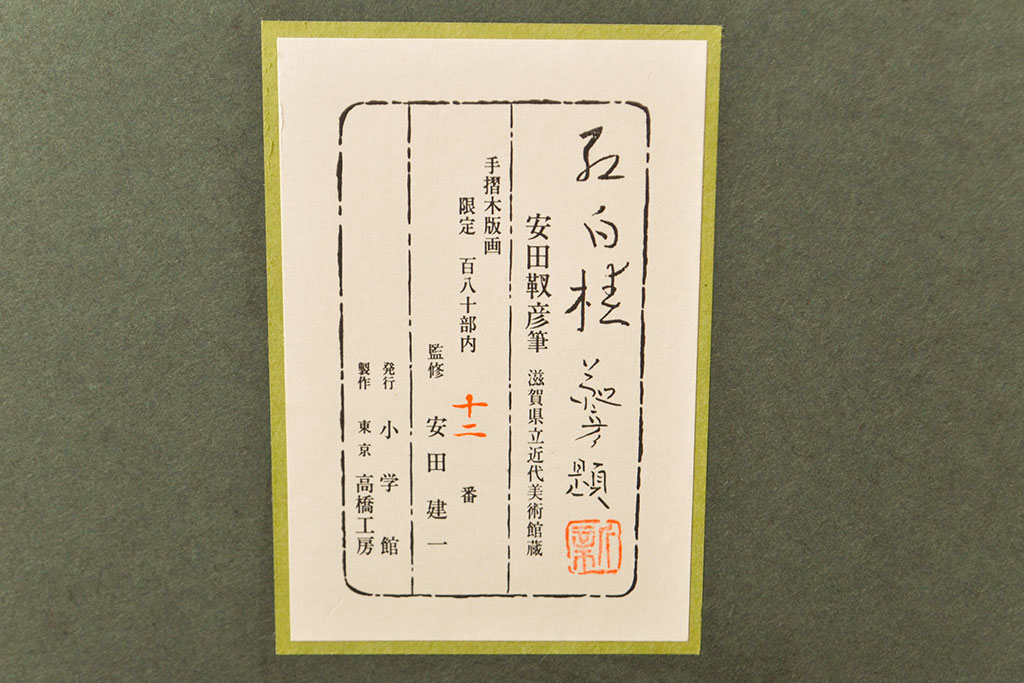 紅白 靫彦題
安田靫彦筆 滋賀県立近代美術館蔵
手摺木版画
限定 百八十部内 十二 番
監修 安田建一
発行 小学館
製作 東京 高橋工房